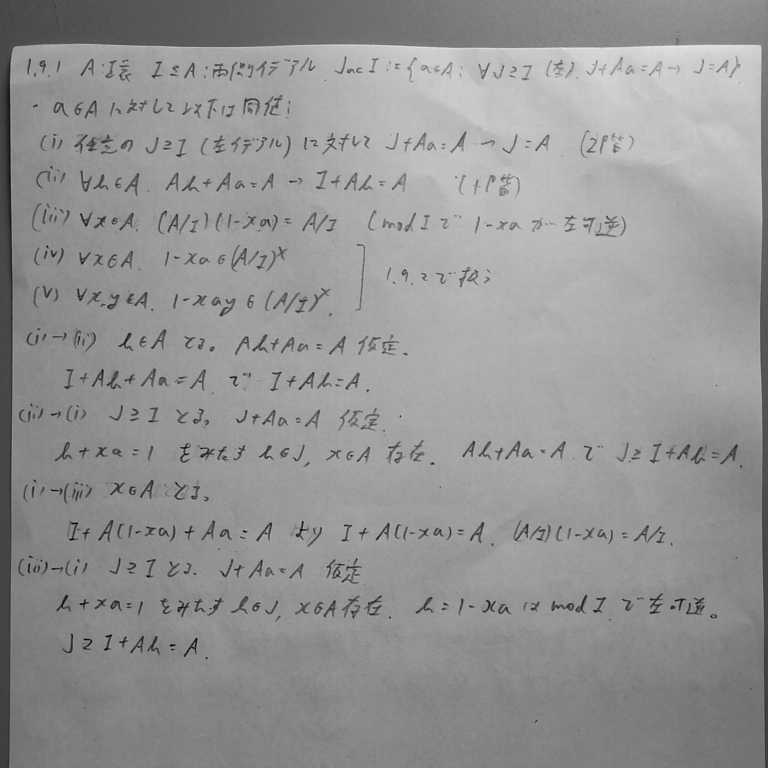 1.9.1 A:環 I≦A:両側イデアル Jac I := {a∈A: ∀J≧I (左). J+Aa=A→J=A}
・a∈A に対して以下は同値:
(i) 任意の J≧I (左イデアル) に対して J+Aa=A → J=A (2階)
(ii) ∀h∈A. Ah+Aa=A → I+Ah=A (1階)
(iii) ∀x∈A. (A/I)(1-xa)=A/I (mod I で 1-xa が左可逆)
(iv) ∀x∈A. 1-xa∈(A/I)^×
(v) ∀x,y∈A. 1-xay∈(A/I)^×.
1.9.2で扱う
(i)→(ii) h∈A とる。 Ah+Aa=A 仮定.
I+Ah+Aa=A で I+Ah=A.
(ii)→(i) J≧I とる。 J+Aa=A 仮定.
h+xa=1 をみたす h∈J, x∈A 存在. Ah+Aa=A で J≧I+Ah=A.
(i)→(iii) x∈A とる。
I+A(1-xa)+Aa=A より I+A(1-xa)=A. (A/I)(1-xa)=A/I.
(iii)→(i) J≧I とる. J+Aa=A 仮定
h+xa=1 をみたす h∈J, x∈A 存在. h=1-xa は mod I で左可逆。
J≧I+Ah=A.